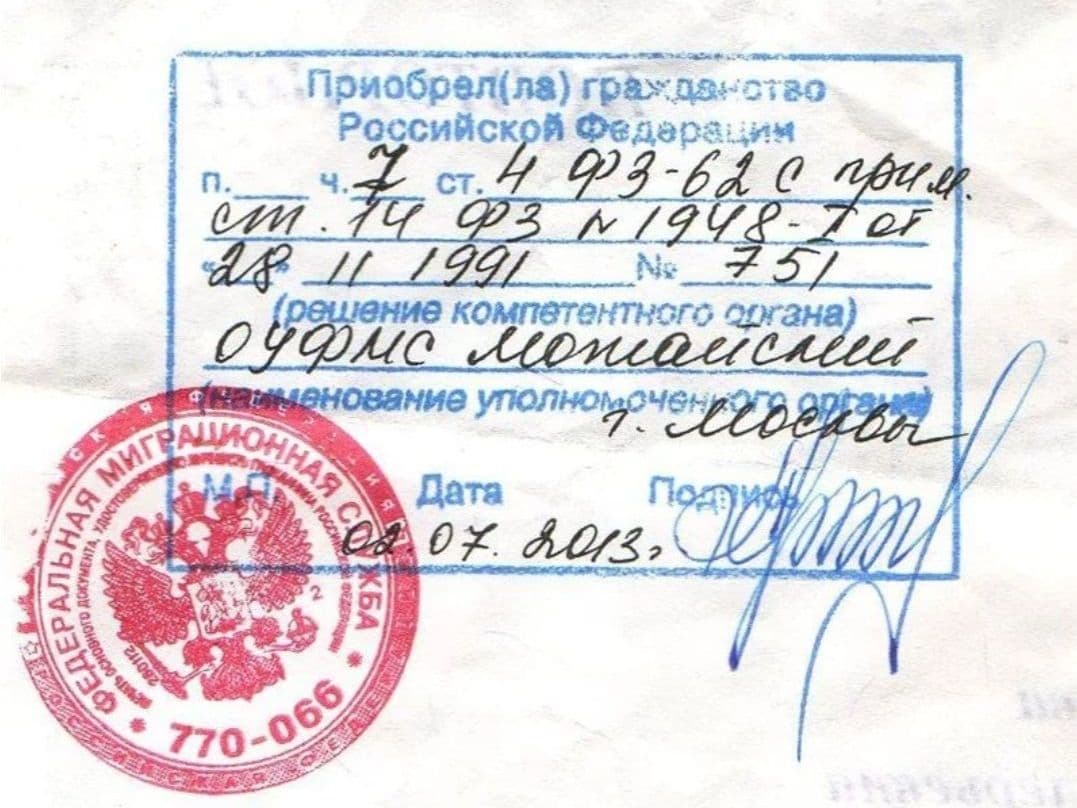 Приобрел(ла) гражданство
Российской Федерации
п.____ ч. 7 ст. 4 ФЗ-62 с прим.
ст. 14 ФЗ N 1948-I от
"28" 11 1991 № 751
(решение компетентного органа)
ОУФМС Можайский
(наименование уполномоченного органа)
г. Москвы
М.П. Дата Подпись
02.07.2013г
ФЕДЕРАЛЬНАЯ МИГРАЦИОННАЯ СЛУЖБА
2
* 770-066 *